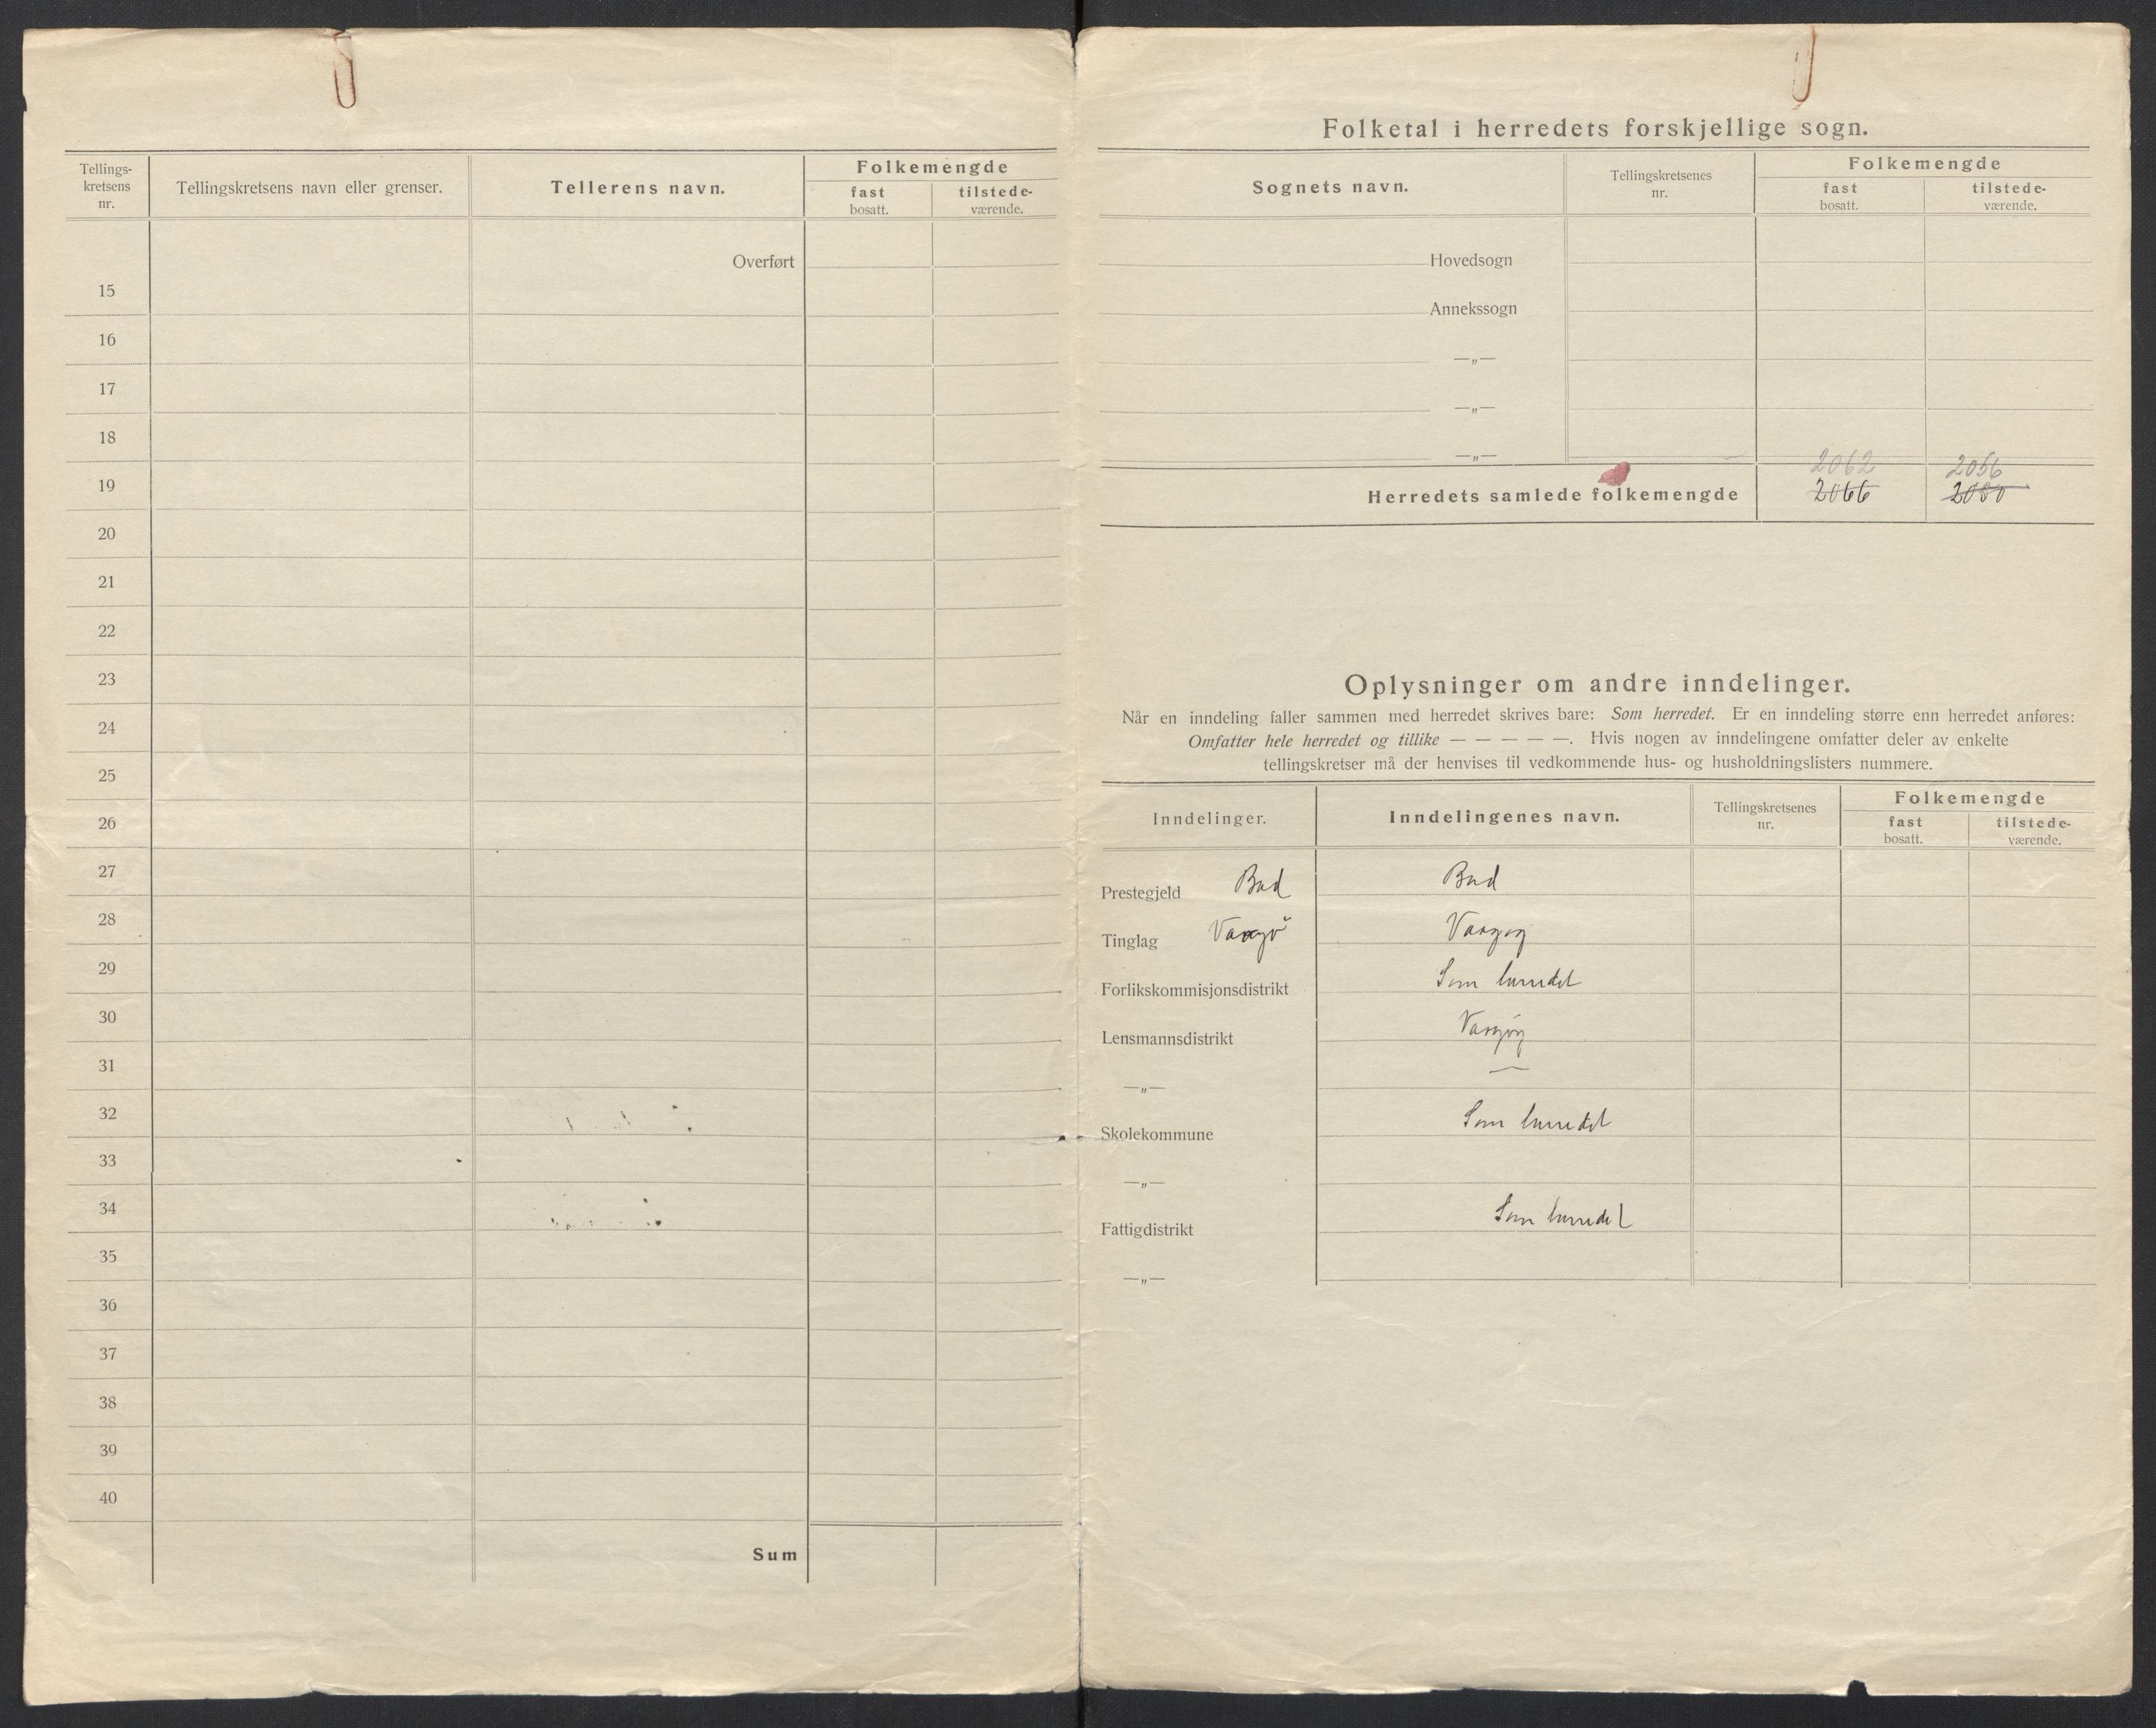 Tellings-
kretsens
nr.
Tellingskretsens navn eller grenser.
Tellerens navn.
Folkemengde
fast
bosatt.
tilstede-
værende.
Overført
15
16
17
18
19
20
21
22
23
24
25
26
27
28
29
30
31
32
33
34
35
36
37
38
39
40
Sum
Folketal i herredets forskjellige sogn.
Sognets navn.
Tellingskretsenes
nr.
Folkemengde
fast
bosatt.
tilstede-
værende.
Hovedsogn
Annekssogn
—„—
—„—
—„—
2062 2056
Herredets samlede folkemengde 2066 2080
Oplysninger om andre inndelinger.
Når en inndeling faller sammen med herredet skrives bare: Som herredet. Er en inndeling større enn herredet anføres:
Omfatter hele herredet og tillike — — — — —. Hvis nogen av inndelingene omfatter deler av enkelte
tellingskretser må der henvises til vedkommende hus- og husholdningslisters nummere.
Inndelinger.
Inndelingenes navn.
Tellingskretsenes
nr.
Folkemengde
fast
bosatt.
tilstede-
værende.
Prestegjeld Bud Bud
Tinglag
Forlikskommisjonsdistrikt Som herredet
Lensmannsdistrikt
—„—
Skolekommune Som herredet
—„—
Fattigdistrikt Som herredet
—„—